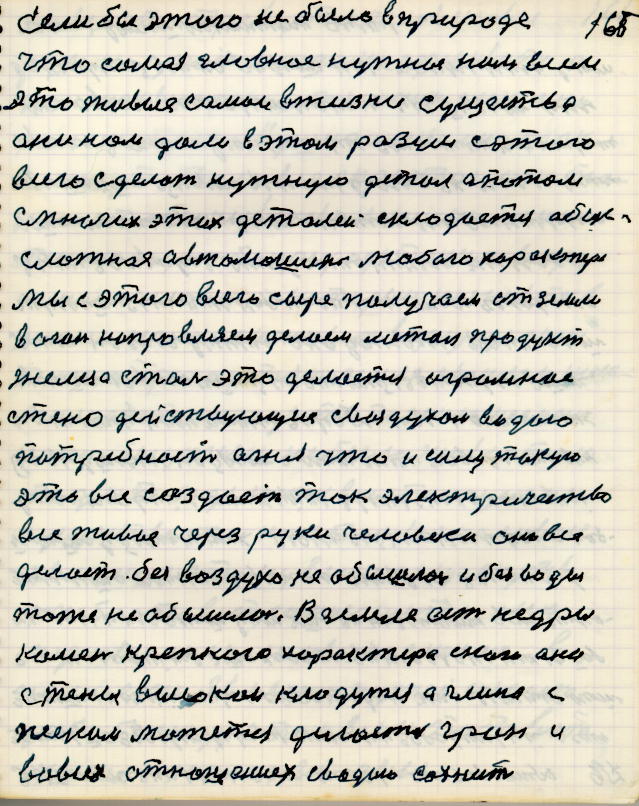 Если бы этого не было в природе 168
что самая главное нужное нам всем
это живые самои в жизни существа
ани нам дали в этом разум с этого
всего сделат нужную детал а потом
с многих этих деталей складается
сложная автомашина любого характера
Мы с этого всего сыре получаем от земли
в огон направляем делаем метал продукт
железа стал это делается огромное
стено действующие с воздухом водою
потребност огня что и силу такую
это все создает ток электричество
все живое через руки человека оно все
делает. без воздуха не обышлос и без воды
тоже не обышлос. В земле ест недры
камен крепкого характера с ного ана
стены высокои кладутся а глина с
песком можется делает гран и
во всех отношениех с водою сохнит